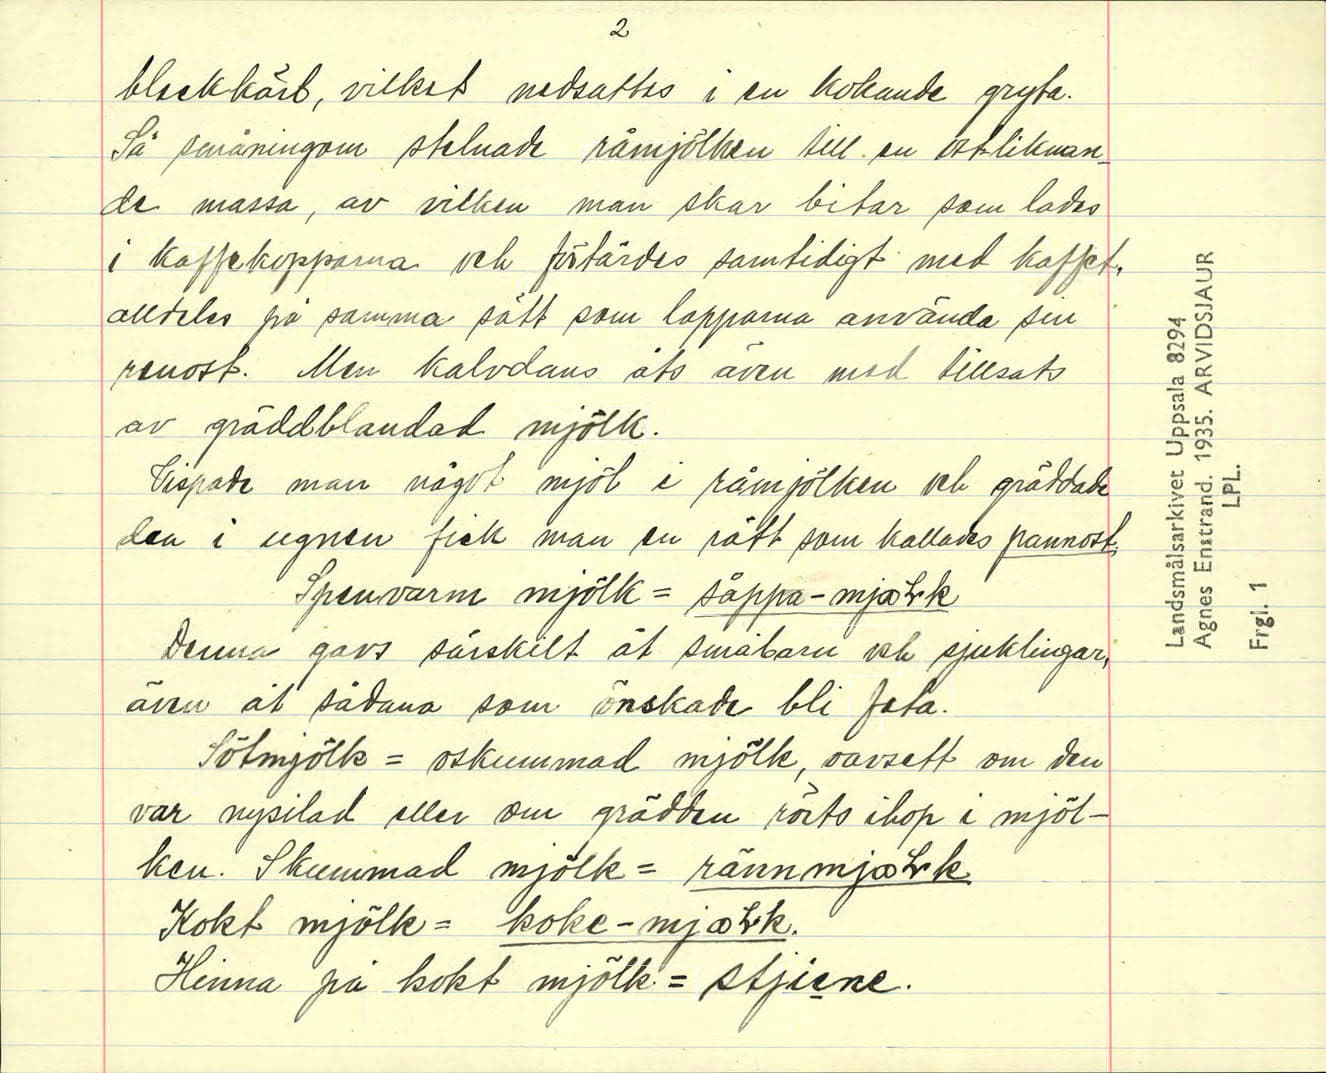 2
bleckkärl, vilket nedsattes i en kokande gryta.
Så småningom stelnade råmjölken till en ostliknan-
de massa, av vilken man skar bitar som lades
i kaffekopparna och förtärdes samtidigt med kaffet,
alldeles på samma sätt som lapparna använda sin
renost. Men kalvdans åts även med tillsats
av gräddblandad mjölk.
Vispade man något mjöl i råmjölken och gräddade
den i ugnen fick man en rätt som kallades pannost.
Spenvarm mjölk = såppa-mjæLk
Denna gavs särskilt åt småbarn och sjuklingar,
även åt sådana som önskade bli feta.
Sötmjölk = oskummad mjölk, oavsett om den
var nysilad eller om grädden rörts ihop i mjöl-
ken. Skummad mjölk = rännmjæLk
Kokt mjölk = koke-mjæLk.
Hinna på kokt mjölk = stjiene.
Landsmålsarkivet Uppsala 8294
Agnes Enstrand. 1935. ARVIDSJAUR
LPL.
Frgl. 1